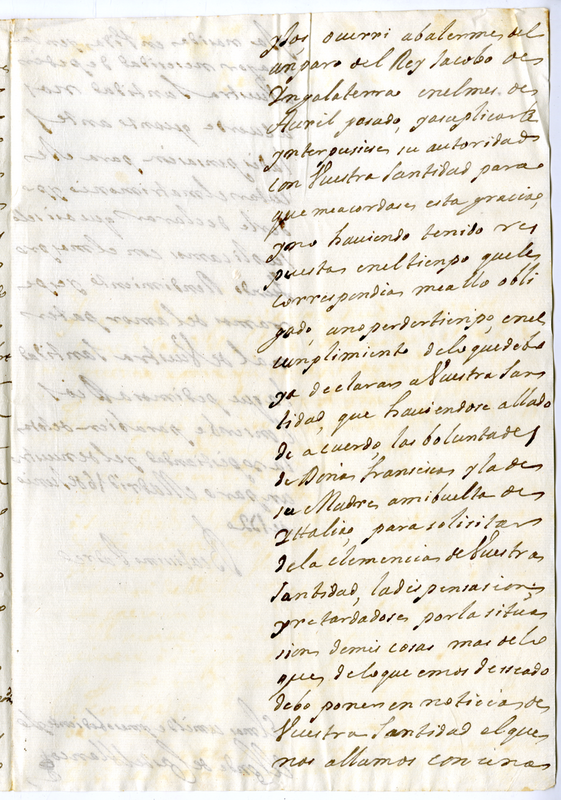 y los ocurri a balermes del
amparo del Rey Jacobo de
Yngalaterra enelmes de
Auril pasado, yasuplicarle
ynterpusiese su autoridad
con Vuestra Santidad para
que meacordase esta gracia,
yno haviendo tenido res
puestas eneltienpo queles
correspondia meallo obli
gado, anoperdertienpo, enel
cunplimiento deloquedebo
ya declarar a Vuestra San
tidad, que haviendose allado
de acuerdo, las boluntades
de Doña Francisca yla de
su Madre amibuelta de
Yttalia, para solisitar
dela clemencia de Vuestra
Santidad, ladispensacion,
yretardadose por la situa
sion demis cosas mas delo
que, deloque emos desseado
debo poner en noticia de
Vuestra Santidad elque
nos allamos con una